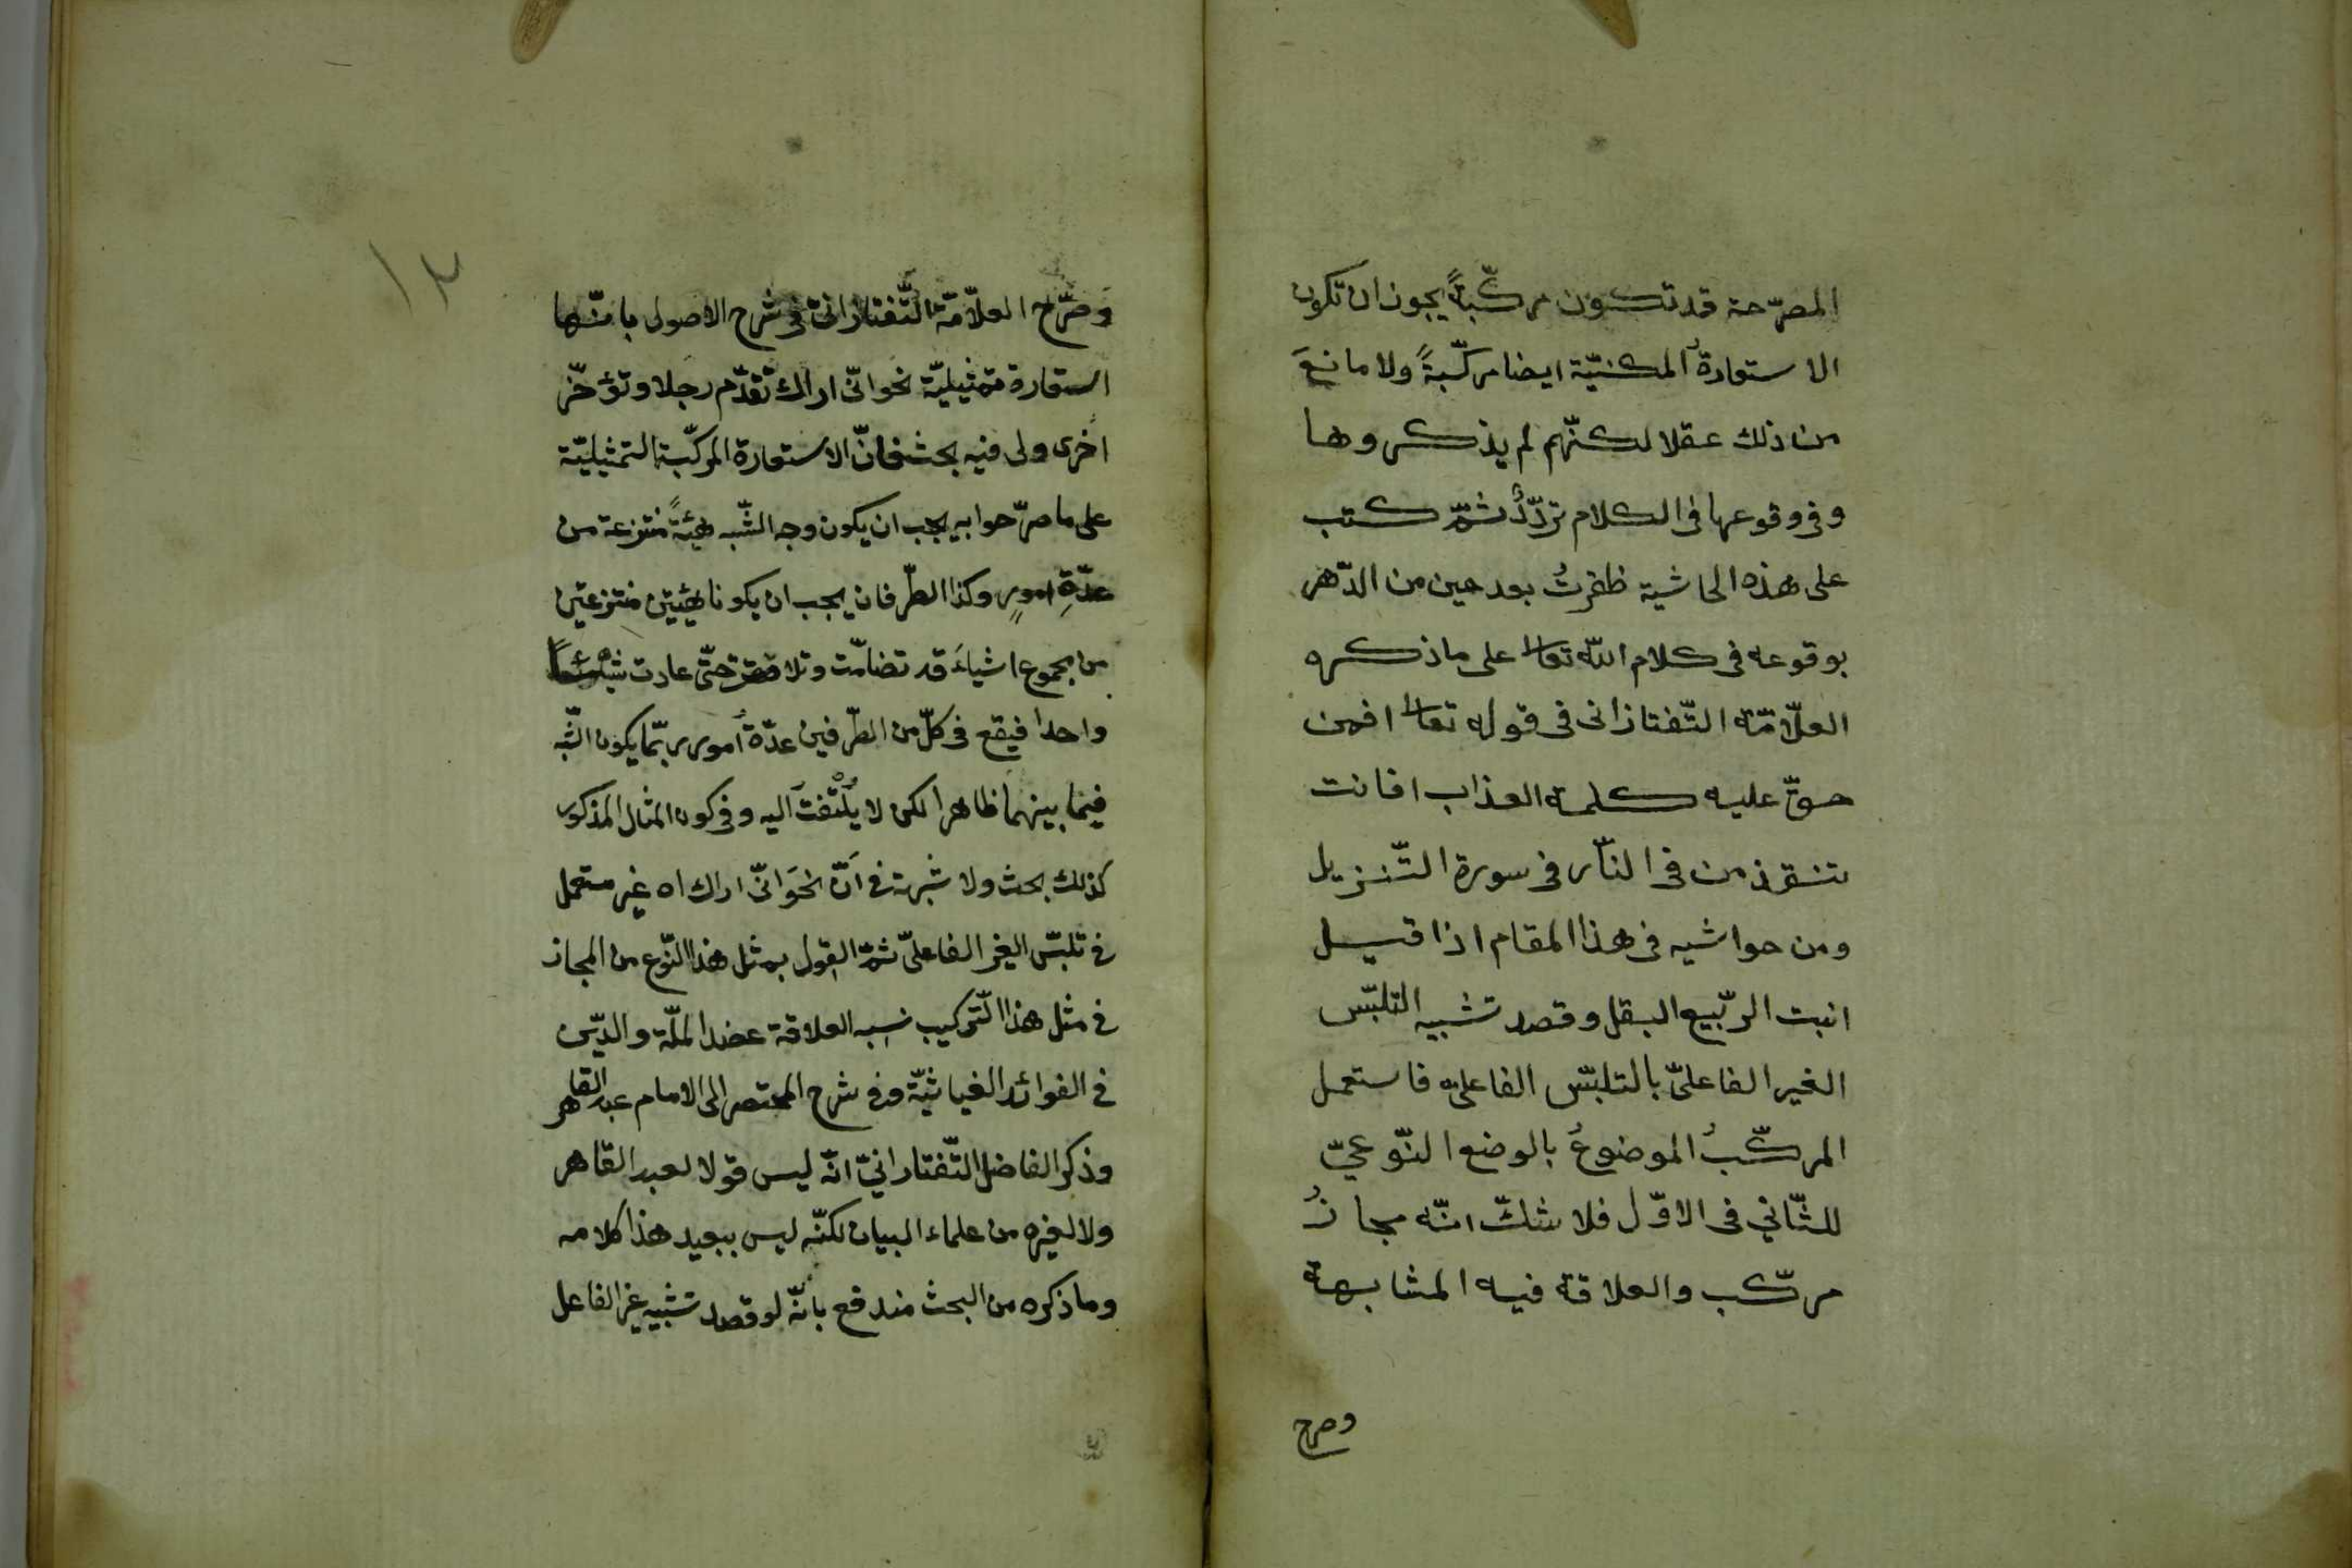 المصرّحة قد تكون مركّبةً يجوز ان تكون
الاستعارةُ المكنيّة ايضا مركّبةً ولا مانعَ
من ذلك عقلا لكنّهم لم يذكروها
وفى وقوعها فى الكلام تردّدٌ ثمّ كتب
على هذه الحاشية ظفرتُ بعد حين من الدّهر
بوقوعه فى كلام اللّه تعالى على ما ذكره
العلّامّة التّفتازانى فى قوله تعالى افمن
حقّ عليه كلمة العذاب افانت
تنقذ من فى النّار فى سورة التّنزيل
ومن حواشيه فى هذا المقام اذا قيل
انبت الرّبيع البقل وقصد تشبيه التلبّس
الغير الفاعلىّ بالتلبّس الفاعلىّ فاستعمل
المركّبُ الموضوعُ بالوضع النّوعىّ
للثّاني فى الاوّل فلا شكّ انّه مجازٌ
مركّب والعلاقة فيه المشابهة
وصرح
١٢
وصرّح العلّامّة التّفتازانىّ فى شرح الاصول بانّها
استعارة تمثيليّة نحو انّى اراك تقدّم رجلا وتؤخّر
اخرى ولى فيه بحث فانّ الاستعارة المركّبة التمثيليّة
على ما صرّحوا به يجب ان يكون وجه الشّبه هيئةً منتزعة من
عدّةِ امورٍ وكذا الطّرفان يجب ان يكونا هيئتين منتزعتين
من مجموع اشياءَ قد تضامّت وتلاصقت حتّى عادت شيئاً
واحدا فيقع فى كلّ من الطّرفين عدّةُ امور ربّما يكون الشّبه
فيما بينهما ظاهرا لكن لا يُلْتَفتَ اليه وفى كون المثال المذكور
كذلك بحث ولا شبهة فى انّ نحوَ انّى اراك اه غير مستعمل
فى تلبّس الغير الفاعلىّ ثمّ القول بمثل هذا النّوع من المجاز
فى مثل هذا التّركيب نسبه العلاقة عضد الملّة والدّين
فى الفوائد الغياثيّة وفى شرح المختصر الى الامام عبد القاهر
وذكر الفاضل التّفتازانىّ انّه ليس قولا لعبد القاهر
ولا لغيره من علماء البيان لكنّه ليس ببعيد هذا كلامه
وما ذكره من البحث مندفع بانّه لو قصد تشبيه غير الفاعل